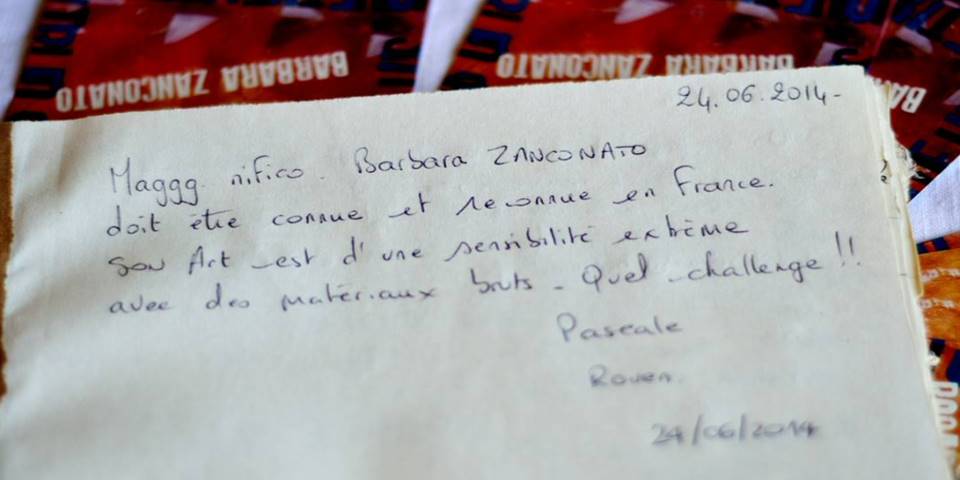 BARBARA ZANCONATO
BARBARA ZANCONATO
BA
24.06.2014-
Maggg nifico. Barbara ZANCONATO
doit être connue et reconnue en France.
son Art est d'une sensibilité extrême
avec des matériaux bruts - Quel challenge !!
Pascale
Rouen.
24/06/2014